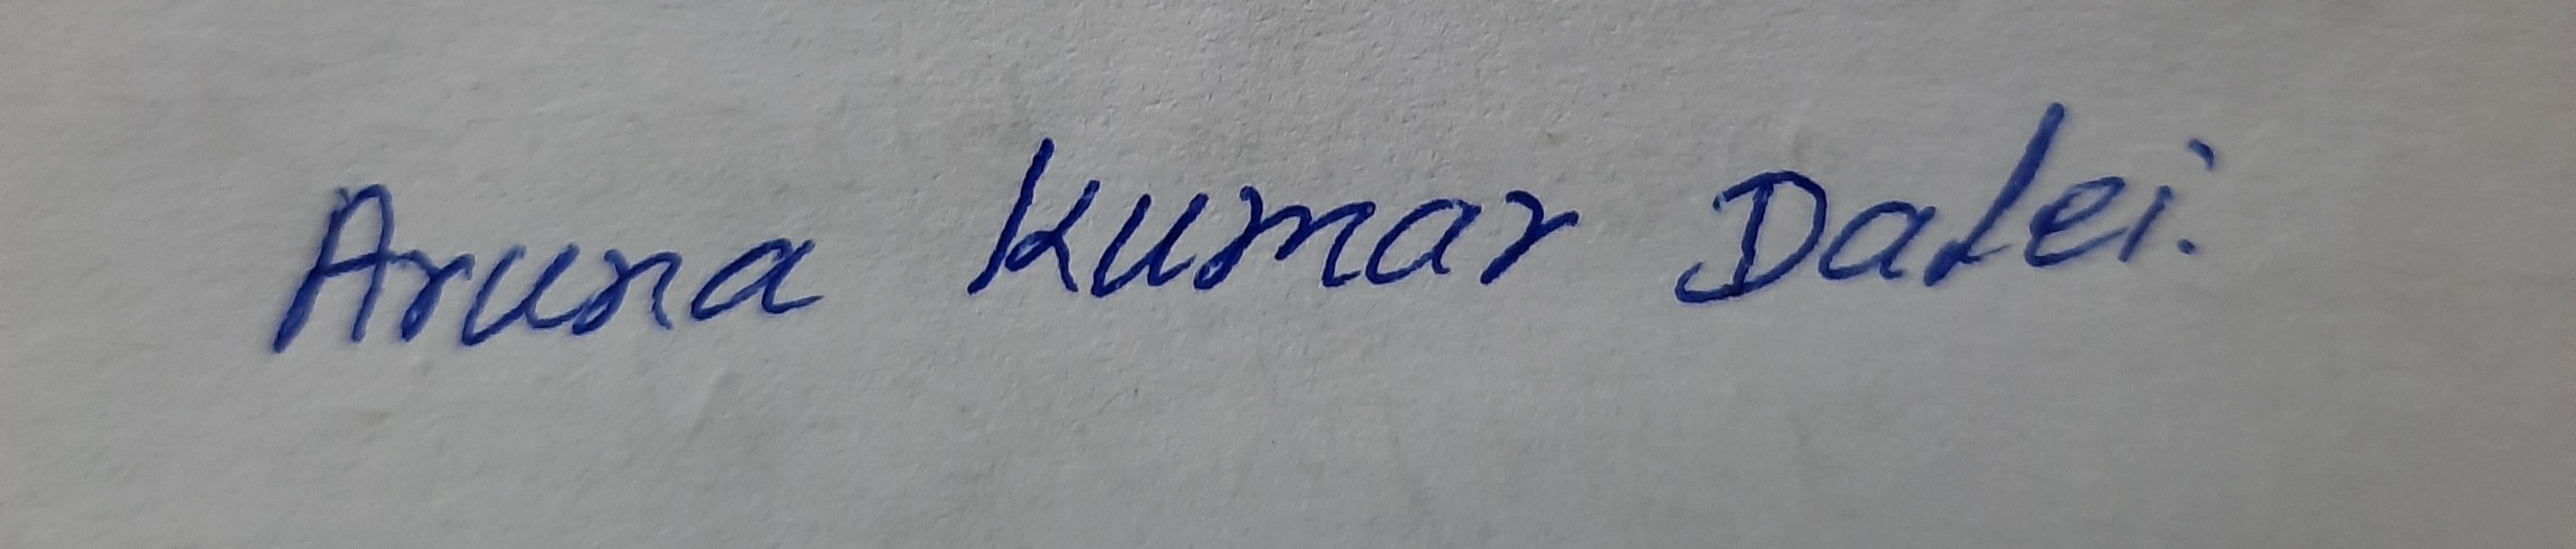 Aruna Kumar Dalei.